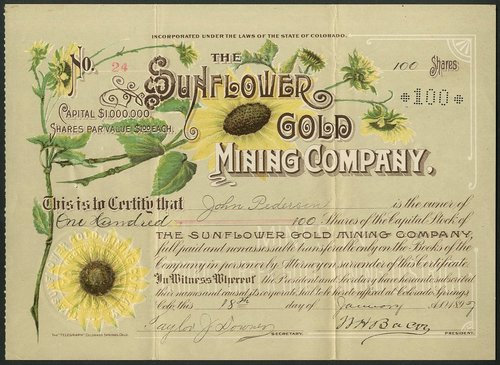 INCORPORATED UNDER THE LAWS OF THE STATE OF COLORADO.
No. 24
THE
100 Shares
SUNFLOWER
*100*
CAPITAL $1,000,000.
SHARES PAR VALUE $1.00 EACH.
GOLD
MINING COMPANY.
This is to Certify that John Pederson is the owner of
One Hundred 100 Shares of the Capital Stock of
THE SUNFLOWER GOLD MINING COMPANY,
full paid and nonassessable transferable only on the Books of the
Company in person or by Attorney on surrender of this Certificate.
In Witness Whereof the President and Secretary have hereunto subscribed
their names and caused its corporate Seal to be hereto affixed at Colorado Springs
Colo, this 18th day of January A.D. 1897
Taylor J Downer
SECRETARY.
PRESIDENT.